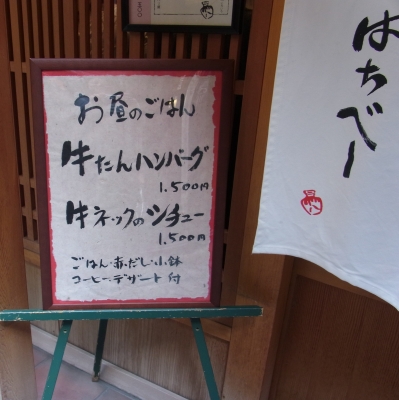 お昼のごはん
牛たんハンバーグ
1,500円
牛ネックのシチュー
1,500円
ごはん・赤だし・小鉢
コーヒー・デザート 付
はちべー